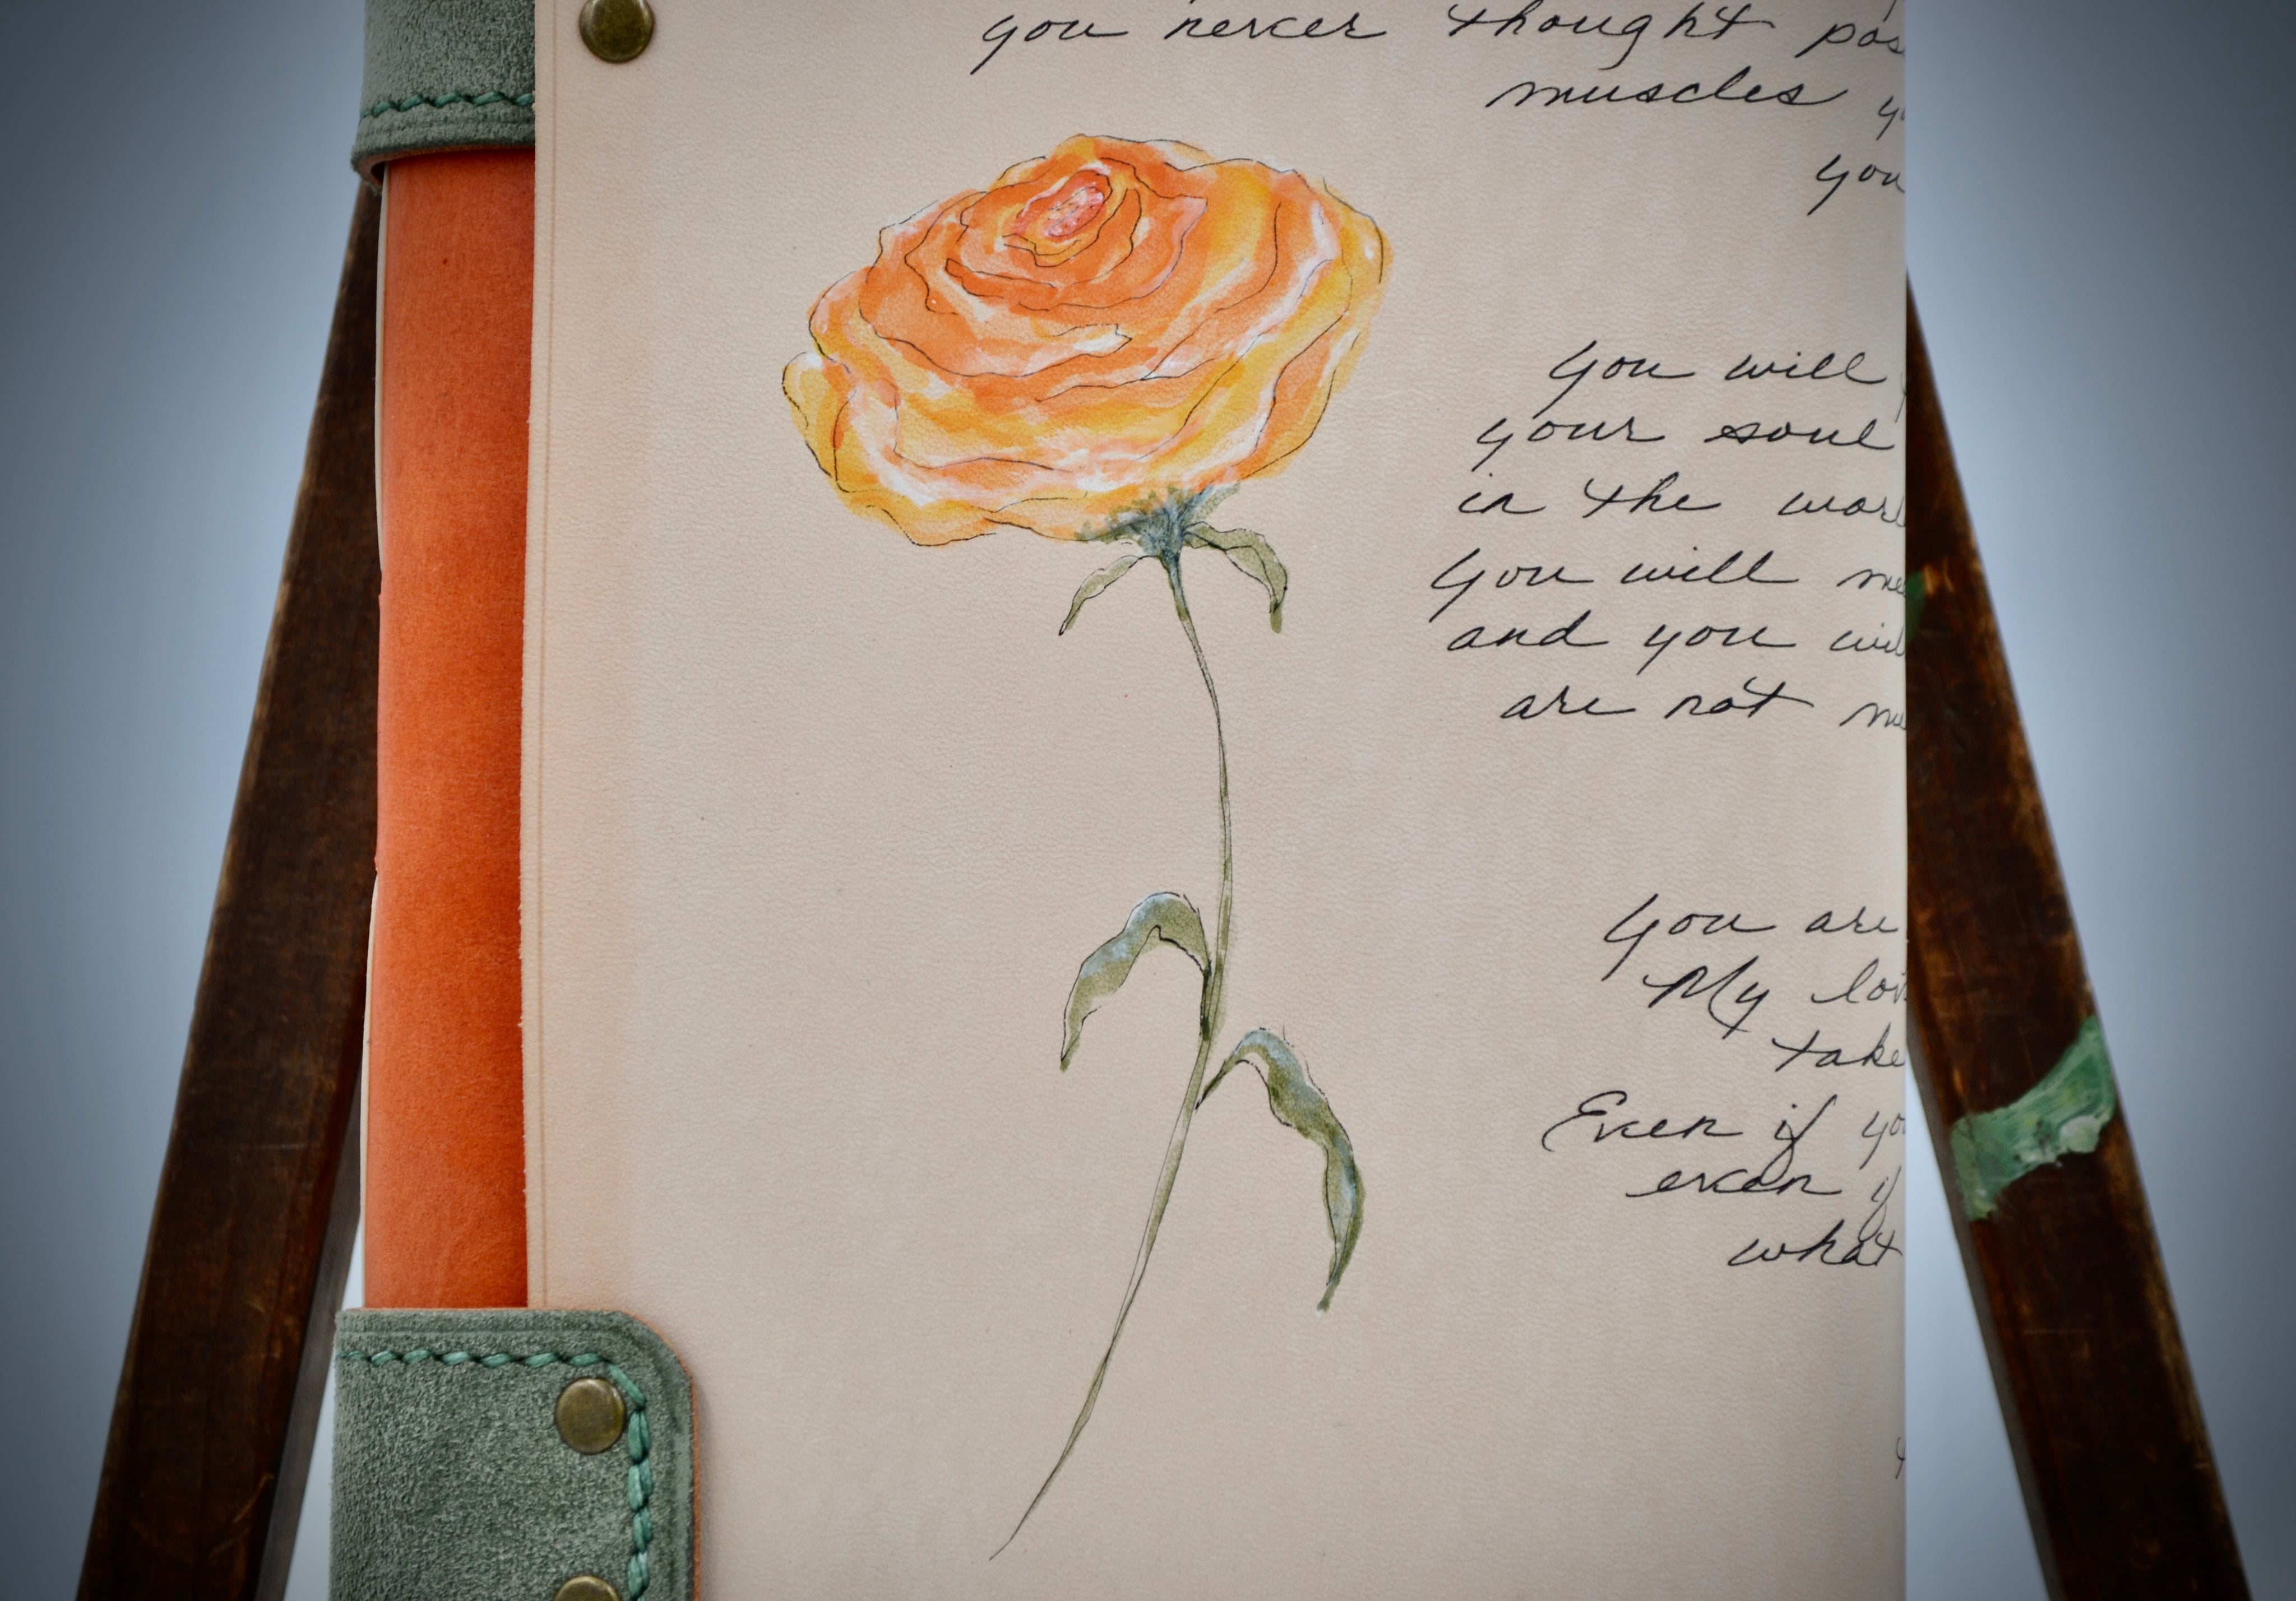 you never thought pos
muscles yo
you
You will
your soul
in the worl
You will me
and you will
are not me
You are
My lov
take
Even if yo
even if
what